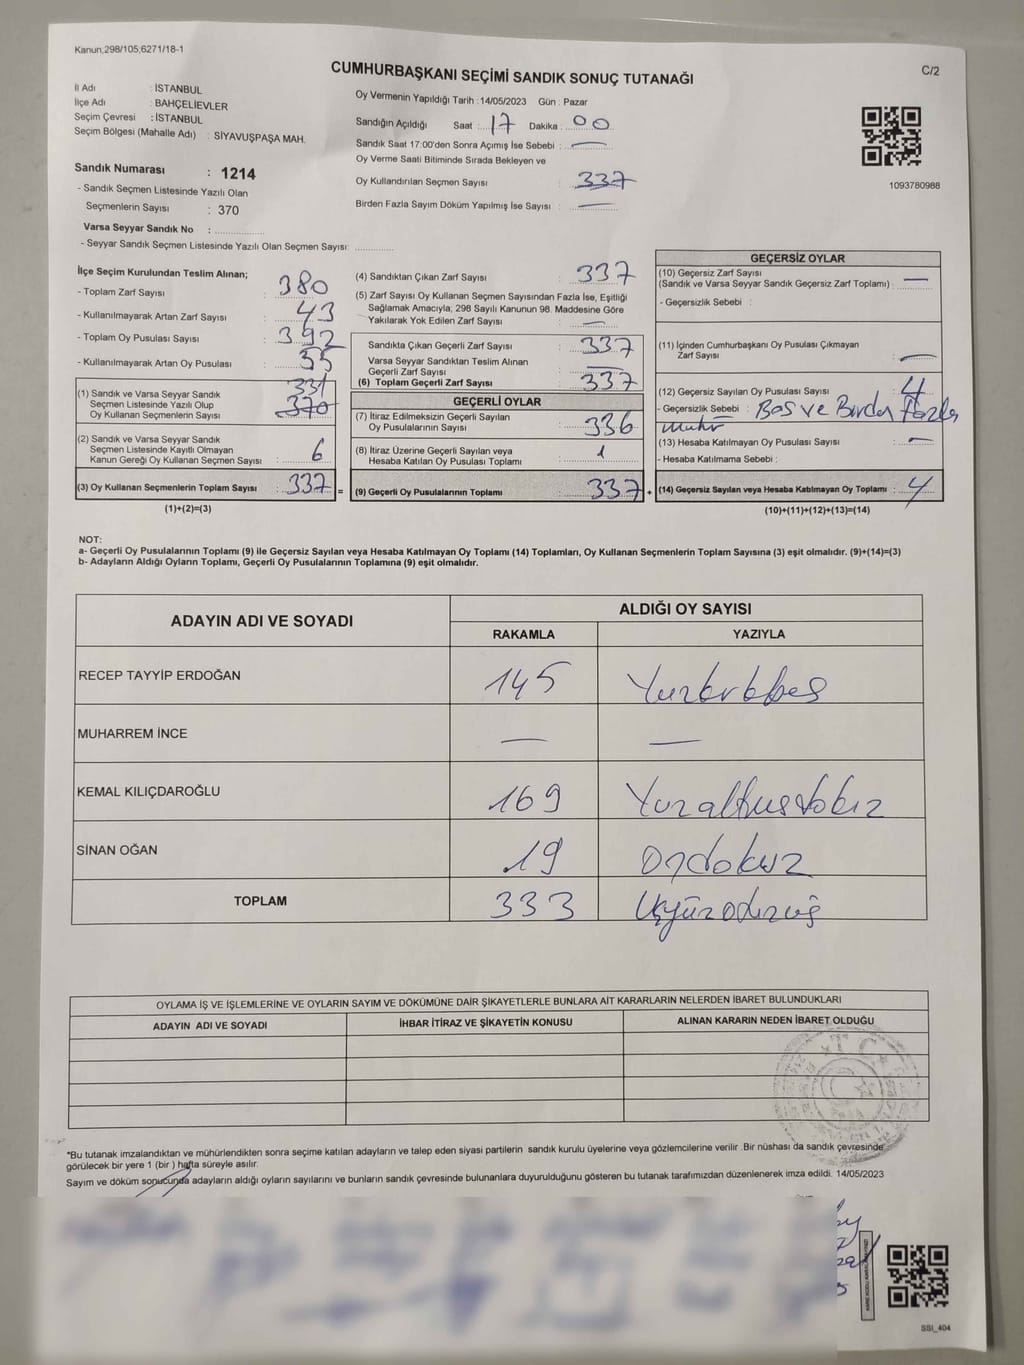 Kanun;298/105;6271/18-1
CUMHURBAŞKANI SEÇİMİ SANDIK SONUÇ TUTANAĞI
C/2
İl Adı : İSTANBUL
İlçe Adı : BAHÇELİEVLER
Seçim Çevresi : İSTANBUL
Seçim Bölgesi (Mahalle Adı) : SİYAVUŞPAŞA MAH.
Sandık Numarası : 1214
- Sandık Seçmen Listesinde Yazılı Olan
Seçmenlerin Sayısı : 370
Varsa Seyyar Sandık No :
- Seyyar Sandık Seçmen Listesinde Yazılı Olan Seçmen Sayısı:
Oy Vermenin Yapıldığı Tarih :14/05/2023 Gün : Pazar
Sandığın Açıldığı Saat : 17 Dakika : 00
Sandık Saat 17:00'den Sonra Açımış İse Sebebi : —
Oy Verme Saati Bitiminde Sırada Bekleyen ve
Oy Kullandırılan Seçmen Sayısı : 337
Birden Fazla Sayım Döküm Yapılmış İse Sayısı : —
1093780988
İlçe Seçim Kurulundan Teslim Alınan;
- Toplam Zarf Sayısı : 380
- Kullanılmayarak Artan Zarf Sayısı : 43
- Toplam Oy Pusulası Sayısı : 392
- Kullanılmayarak Artan Oy Pusulası : 55
(1) Sandık ve Varsa Seyyar Sandık
Seçmen Listesinde Yazılı Olup
Oy Kullanan Seçmenlerin Sayısı : 331 370
(2) Sandık ve Varsa Seyyar Sandık
Seçmen Listesinde Kayıtlı Olmayan
Kanun Gereği Oy Kullanan Seçmen Sayısı : 6
(3) Oy Kullanan Seçmenlerin Toplam Sayısı : 337 =
(1)+(2)=(3)
(4) Sandıktan Çıkan Zarf Sayısı : 337
(5) Zarf Sayısı Oy Kullanan Seçmen Sayısından Fazla İse, Eşitliği
Sağlamak Amacıyla, 298 Sayılı Kanunun 98. Maddesine Göre
Yakılarak Yok Edilen Zarf Sayısı : —
Sandıkta Çıkan Geçerli Zarf Sayısı : 337
Varsa Seyyar Sandıktan Teslim Alınan
Geçerli Zarf Sayısı : —
(6) Toplam Geçerli Zarf Sayısı : 337
GEÇERLİ OYLAR
(7) İtiraz Edilmeksizin Geçerli Sayılan
Oy Pusulalarının Sayısı : 336
(8) İtiraz Üzerine Geçerli Sayılan veya
Hesaba Katılan Oy Pusulası Toplamı : 1
(9) Geçerli Oy Pusulalarının Toplamı : 337 +
GEÇERSİZ OYLAR
(10) Geçersiz Zarf Sayısı
(Sandık ve Varsa Seyyar Sandık Geçersiz Zarf Toplamı) : —
- Geçersizlik Sebebi :
(11) İçinden Cumhurbaşkanı Oy Pusulası Çıkmayan
Zarf Sayısı : —
(12) Geçersiz Sayılan Oy Pusulası Sayısı : 4
- Geçersizlik Sebebi : Bos ve Birden fazla
mühür
(13) Hesaba Katılmayan Oy Pusulası Sayısı : —
- Hesaba Katılmama Sebebi :
(14) Geçersiz Sayılan veya Hesaba Katılmayan Oy Toplamı : 4
(10)+(11)+(12)+(13)=(14)
NOT:
a- Geçerli Oy Pusulalarının Toplamı (9) ile Geçersiz Sayılan veya Hesaba Katılmayan Oy Toplamı (14) Toplamları, Oy Kullanan Seçmenlerin Toplam Sayısına (3) eşit olmalıdır. (9)+(14)=(3)
b- Adayların Aldığı Oyların Toplamı, Geçerli Oy Pusulalarının Toplamına (9) eşit olmalıdır.
ADAYIN ADI VE SOYADI
ALDIĞI OY SAYISI
RAKAMLA YAZIYLA
RECEP TAYYİP ERDOĞAN 145
MUHARREM İNCE — —
KEMAL KILIÇDAROĞLU 169
SİNAN OĞAN 19 Ondokuz
TOPLAM 333
OYLAMA İŞ VE İŞLEMLERİNE VE OYLARIN SAYIM VE DÖKÜMÜNE DAİR ŞİKAYETLERLE BUNLARA AİT KARARLARIN NELERDEN İBARET BULUNDUKLARI
ADAYIN ADI VE SOYADI İHBAR İTİRAZ VE ŞİKAYETİN KONUSU ALINAN KARARIN NEDEN İBARET OLDUĞU
T.C.
*Bu tutanak imzalandıktan ve mühürlendikten sonra seçime katılan adayların ve talep eden siyasi partilerin sandık kurulu üyelerine veya gözlemcilerine verilir. Bir nüshası da sandık çevresinde
görülecek bir yere 1 (bir ) hafta süreyle asılır.
Sayım ve döküm sonucunda adayların aldığı oyların sayılarını ve bunların sandık çevresinde bulunanlara duyurulduğunu gösteren bu tutanak tarafımızdan düzenlenerek imza edildi. 14/05/2023
SSI_404